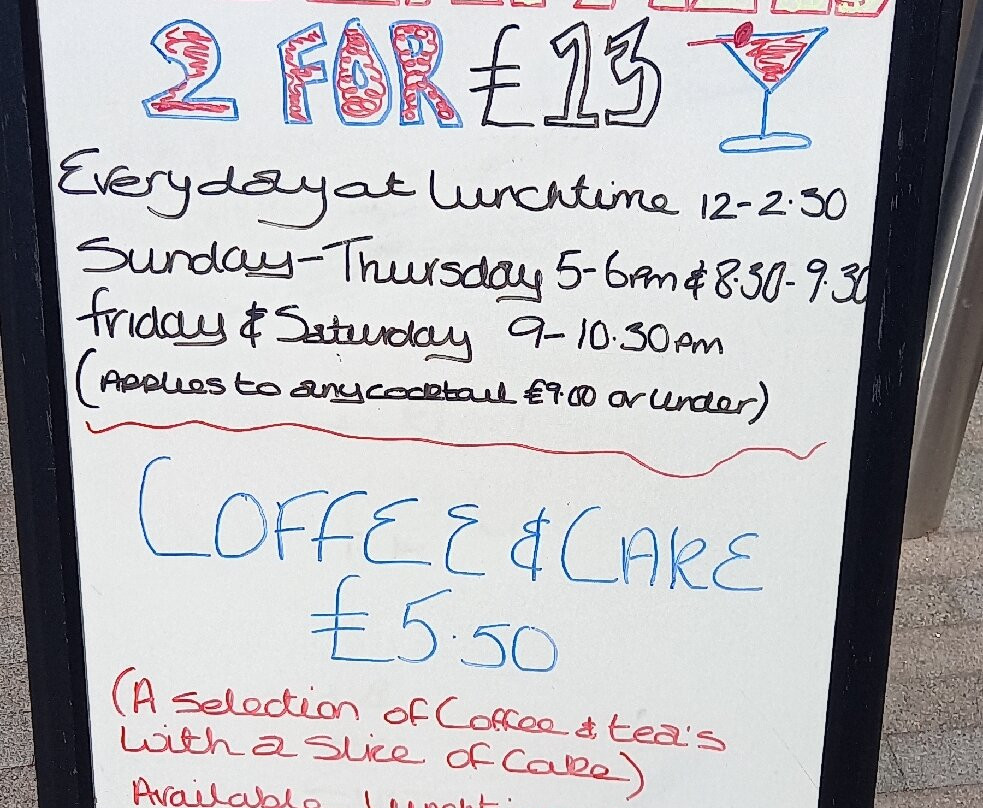 2 FOR £13
Everyday at Lunchtime 12-2.30
Sunday-Thursday 5-6pm & 8.30-9.30
friday & Saturday 9-10.30pm
(Applies to any cocktail £9.00 or under)
COFFEE & CAKE
£5.50
(A selection of Coffee & tea's
with a slice of Cake)
Available